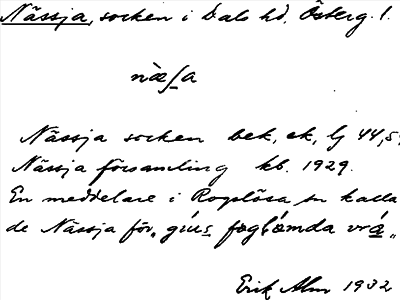 Nässja, socken i Dals hd, Österg. l.
nä̀ʃa
Nässja socken bek, ek, lj 44,5
Nässja församling kb. 1929.
En meddelare i Rogslösa sn kalla
de Nässja för „ gius fogglömda vrá „
Erik Alm 1932